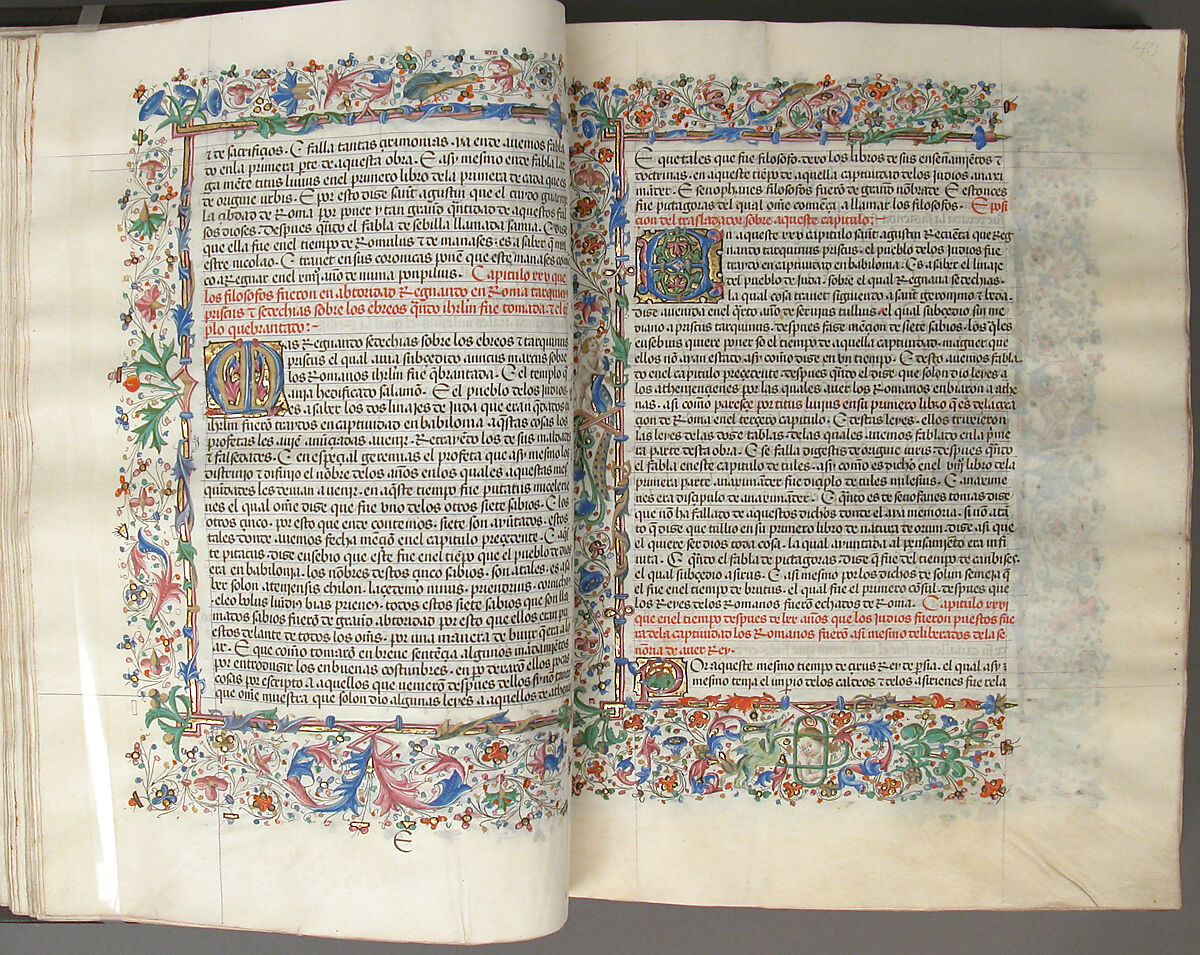 τ de sacrifiçios. E falla tantas çerimonias. ya ende auemos fabla
do enla primera pte de aquesta obra. E asy mesmo ende fabla lar
ga mēte titus liuius enel primero libro dela primera de cada que es
de origine urbis. E por esto dize sant agustin que el cuydo guarnir
la çibdad de Roma por poner y tan grand quātidad de aquestos fal
sos dioses. despues qn̄to el fabla de sebilla llamada samia. E dize
que ella fue enel tiempo de Romulus τ de manases. es a saber q̄ n̄ro
estre nicolao. E trauet en sus coronicas ponē que este manases
co a Regnar enel año de numa pompilius. Capitulo xxv que
los filosofos fueron en abtoridad Regnando en Roma tarquinus
priscus τ sedechias sobre los ebreos qn̄to ihrlm fue tomada τ el tē
plo quebrantado:~
MAs Regnando sedechias sobre los ebreos τ tarquinus
priscus el qual auia subçedido auncus marcus sobre
los Romanos ihrlm fue q̄brantada. E el templo q̄
auia hedificado salamō. E el pueblo de los judios
es a saber los dos linajes de juda que eran q̄dados en
ihrlm fuerō traydos en captiuidad en babilonia. aq̄stas cosas los
profetas les auiē anūçiadas auenir. Retrayēdo los de sus maldades
τ falsedades. E en espeçial geremias el profeta que asy mesmo los
distinto τ difinio el nōbre de los años en los quales aquestas mes
quidades les deuian auenir. en aq̄ste tiempo fue putatus miçelene
nes el qual om̄e dize que fue vno de los otros siete sabios. E los
otros çinco. por esto que ende contemos. siete son ayūtados. estos
tales donde auemos fecha mēçiō enel capitulo preçedente. E aq̄s
te pitacus. dize eusebio que este fue enel tiēpo que el pueblo de dios
era en babilonia. los nōbres destos çinco sabios. son atales. es a sa
ber solon. ateniensis chilon. laçedemo nimus. priendrius. cornicho
cleo bolus luidin bias prienen. todos estos siete sabios que son lla
mados sabios fuerō de grand abtoridad por esto que ellos eran pu
estos delante de todos los om̄s. por una manera de biuir q̄ era al
ar. E que como tomarō en breue sentençia algunos mādamiētos
por entroduzir los en buenas costunbres. en po dexarō ellos pocas
cosas por escripto a aquellos que vinierō despues dellos sy nō tanto
que om̄e muestra que solon dio algunas leyes a aquellos de athena
E
40
E que tales que fue filosofo. dexo los libros de sus enseñamiētos τ
doctrinas. en aqueste tiēpo de aquella captiuidad de los judios anaxi
māder. E senophanes filosofos fuerō de grand nōbrade. E estonçes
fue pitagoras del qual om̄e comēça allamar los filosofos. Exposi
çion del trasladador sobre aqueste capitulo:~
EN aqueste xxv capitulo sant agustin Recuēta que Reg
nando tarquinus priscus. el pueblo de los judios fue
traydo en captiuidad en babilonia. Es a saber el linaje
del pueblo de juda. sobre el qual Regnaua sedechias.
la qual cosa trauet siguiendo a sant geronimo τ beda.
dize auenida enel q̄rto año. de seruius tullius. el qual subçedio sin me
diano a priscus tarquinus. despues faze mēçion de siete sabios. los q̄les
eusebius quiere poner so el tiempo de aquella captiuidad. maguer que
ellos nō ayan estado. asy como dize en vn tiempo. E desto auemos fabla
do enel capitulo preçedente. despues qn̄to el dize que solon dio leyes a
los athenienençenes por las quales auer los Romanos enbiarō a athe
nas. asy como pareçe por titus liuius en su primero libro que es de la crea
çion de Roma enel terçero capitulo. E destas leyes. ellos truxieron
las leyes de las doze tablas. de las quales auemos fablado en la p̄ime
ra parte desta obra. E se falla digestis de origine iuris. despues qn̄to
el fabla eneste capitulo de tales. asy como es dicho enel libro dela
primera parte. anaximāder fue diçiplo de tales milesius. E anaxime
nes era disçipulo de anaximāder. E qn̄to es de senofanes tomas dize
que nō ha fallado de aquestos dichos donde el aya memoria. sy nō atā
to q̄ dize que tullio en su primero libro de natura deorum. dize asy que
el quiere ser dios toda cosa. la qual ayuntada al pensamiēto era infi
nita. E qn̄to el fabla de pitagoras. dize q̄ fue del tiempo de canbises.
el qual subçedio asirus. E asy mesmo por los dichos de solin semeja q̄
el fue enel tiempo de brutus. el qual fue el primero cōsul. despues que
los Reyes de los Romanos fuerō echados de Roma. Capitulo xxvj
que enel tiempo despues de lxx años que los judios fueron puestos fue
ra dela captiuidad los Romanos fuerō asi mesmo deliberados dela se
ñoria de auer Rey.
POr aqueste mesmo tiempo de çirus Rey de p̄sia. el qual asy τ
mesmo tenia el inpio de los caldeos τ de los asirienes fue rela